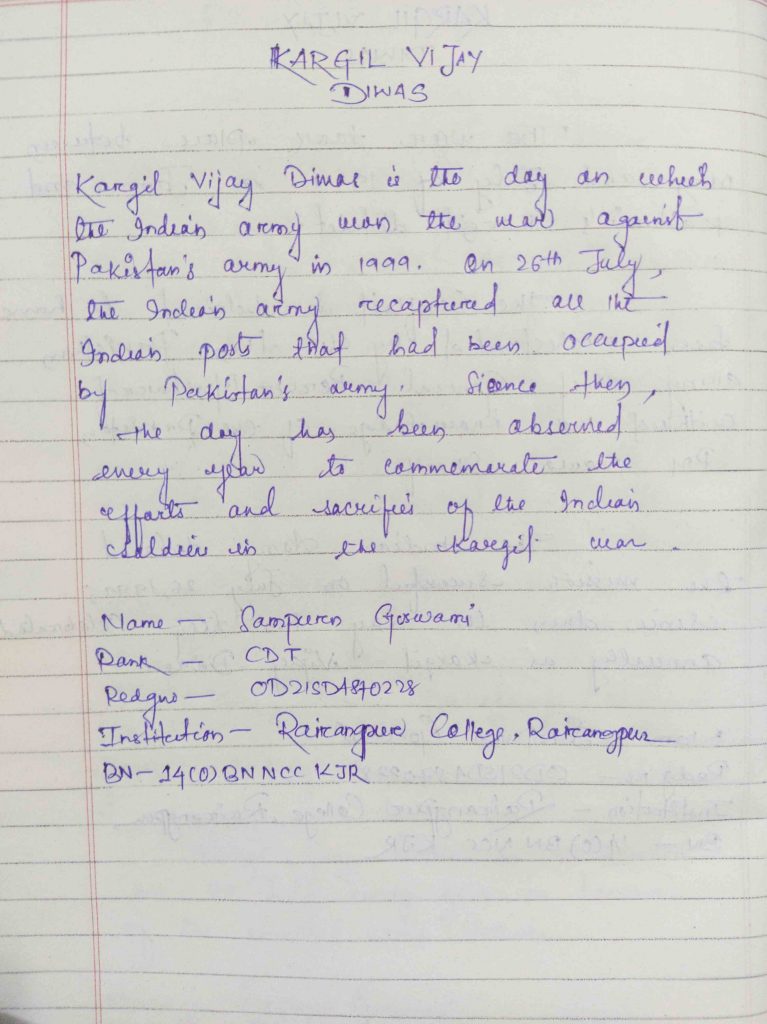 KARGIL VIJAY
DIWAS
Kargil Vijay Diwas is the day on which
the Indian army won the war against
Pakistan's army in 1999. On 26th July,
the Indian army recaptured all the
Indian posts that had been occupied
by Pakistan's army. Sience then,
the day has been observed
every year to commemorate the
efforts and sacrifies of the Indian
in the Kargil war.
Name - Sampurn Goswami
Rank - CDT
Redgno - OD21SDA870228
Institution - Rairangpur College, Rairangpur
BN - 14(O) BN NCC KJR